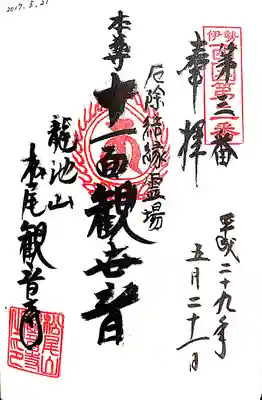 2017.5.21
伊勢西国第三番
第三番
奉拝
平成二十九年
五月二十一日
厄除結縁霊場
本尊
十一面観世音
龍池山
松尾観音寺